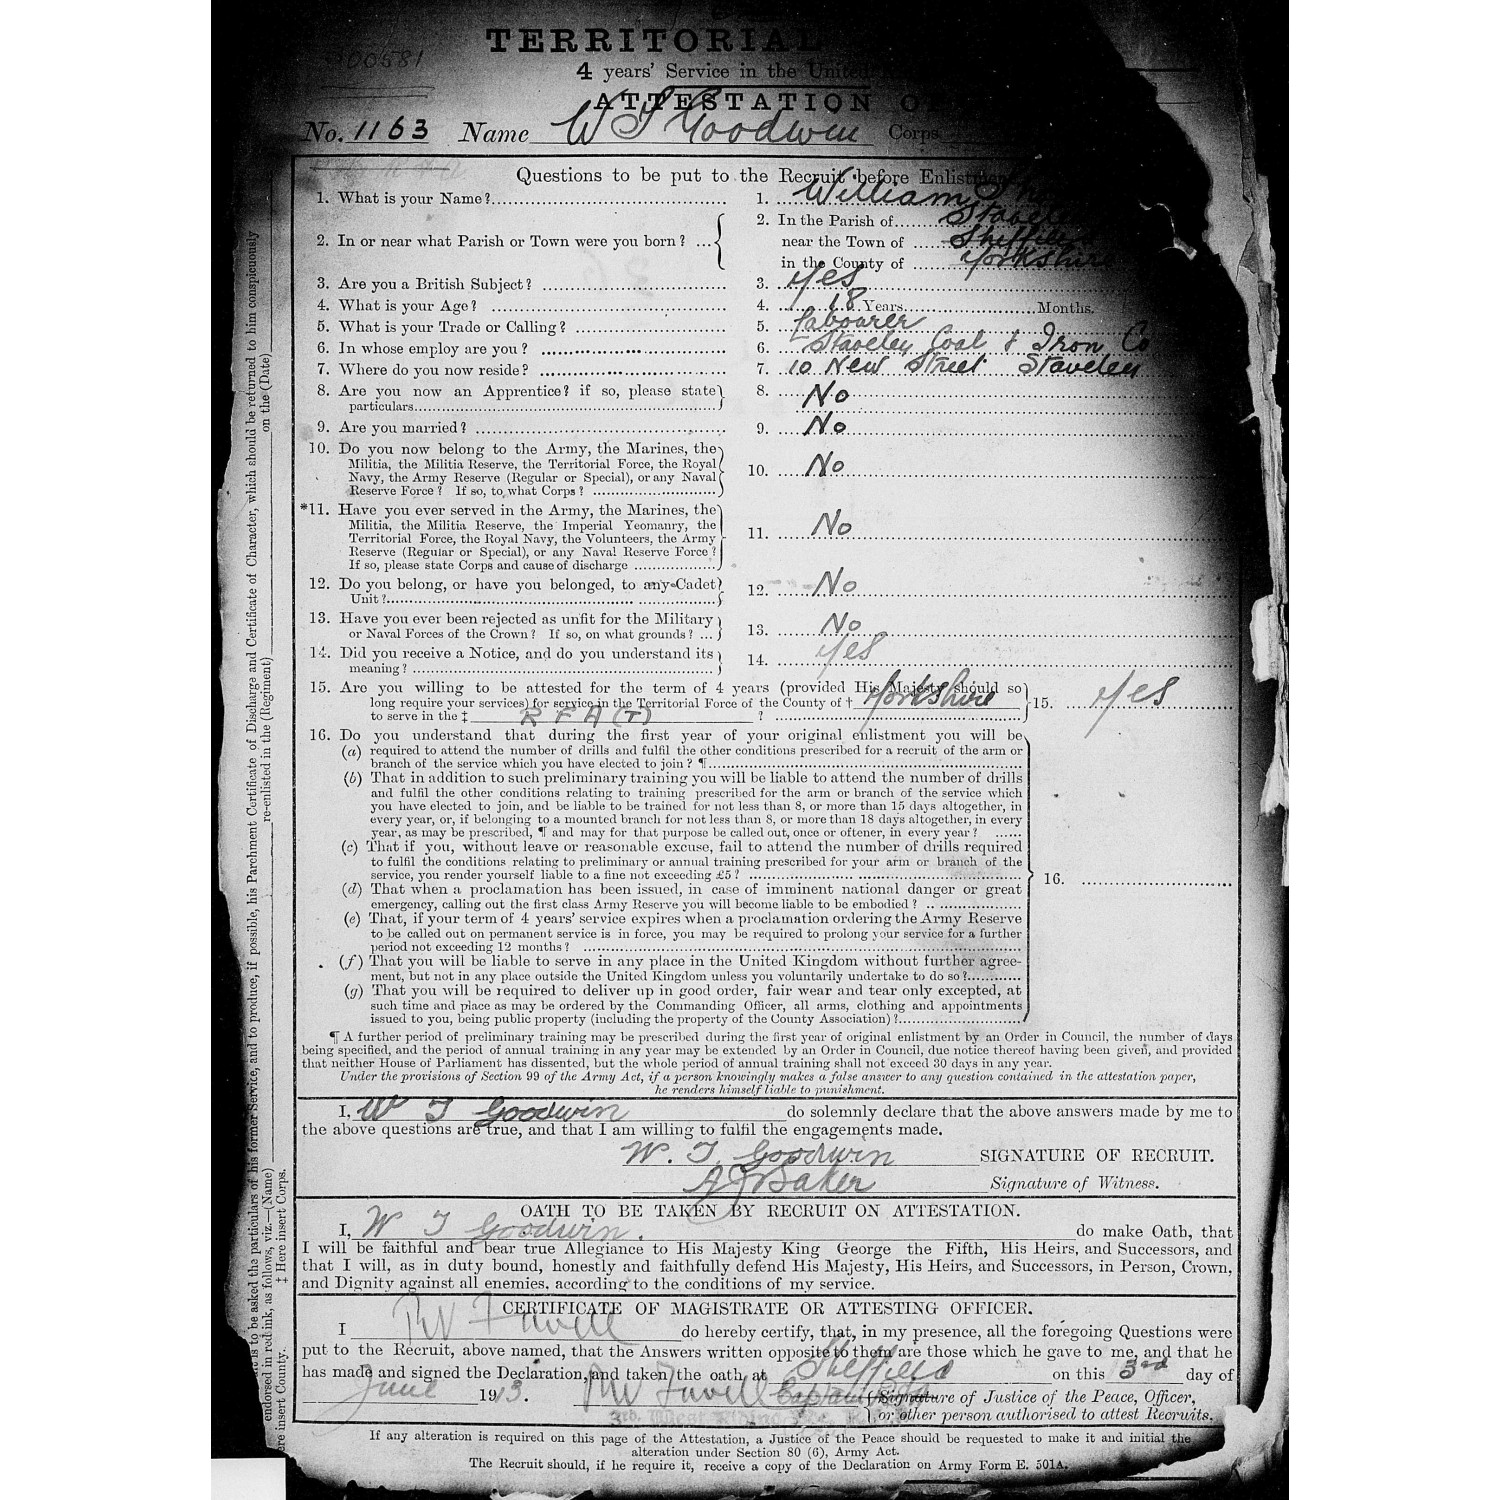 TERRITORIAL
4 years' Service in the United
ATTESTATION OF
No. 1163 Name W T Goodwin Corps
Questions to be put to the Recruit before Enlistment
1. What is your Name? 1. William
2. In or near what Parish or Town were you born? 2. In the Parish of Staveley
near the Town of Sheffield
in the County of Yorkshire
3. Are you a British Subject? 3. Yes
4. What is your Age? 4. 18 Years Months.
5. What is your Trade or Calling? 5. Labourer
6. In whose employ are you? 6. Staveley Coal & Iron Co
7. Where do you now reside? 7. 10 New Street Staveley
8. Are you now an Apprentice? if so, please state 8. No
particulars
9. Are you married? 9. No
10. Do you now belong to the Army, the Marines, the
Militia, the Militia Reserve, the Territorial Force, the Royal 10. No
Navy, the Army Reserve (Regular or Special), or any Naval
Reserve Force? If so, to what Corps?
*11. Have you ever served in the Army, the Marines, the
Militia, the Militia Reserve, the Imperial Yeomanry, the 11. No
Territorial Force, the Royal Navy, the Volunteers, the Army
Reserve (Regular or Special), or any Naval Reserve Force?
If so, please state Corps and cause of discharge
12. Do you belong, or have you belonged, to any Cadet 12. No
Unit?
13. Have you ever been rejected as unfit for the Military 13. No
or Naval Forces of the Crown? If so, on what grounds? ...
14. Did you receive a Notice, and do you understand its 14. Yes
meaning?
15. Are you willing to be attested for the term of 4 years (provided His Majesty should so
long require your services) for service in the Territorial Force of the County of † Yorkshire 15. Yes
to serve in the ‡ R F A (T) ?
16. Do you understand that during the first year of your original enlistment you will be
(a) required to attend the number of drills and fulfil the other conditions prescribed for a recruit of the arm or
branch of the service which you have elected to join? ¶
(b) That in addition to such preliminary training you will be liable to attend the number of drills
and fulfil the other conditions relating to training prescribed for the arm or branch of the service which
you have elected to join, and be liable to be trained for not less than 8, or more than 15 days altogether, in
every year, or, if belonging to a mounted branch for not less than 8, or more than 18 days altogether, in every
year, as may be prescribed, ¶ and may for that purpose be called out, once or oftener, in every year?
(c) That if you, without leave or reasonable excuse, fail to attend the number of drills required
to fulfil the conditions relating to preliminary or annual training prescribed for your arm or branch of the
service, you render yourself liable to a fine not exceeding £5? 16.
(d) That when a proclamation has been issued, in case of imminent national danger or great
emergency, calling out the first class Army Reserve you will become liable to be embodied?
(e) That, if your term of 4 years' service expires when a proclamation ordering the Army Reserve
to be called out on permanent service is in force, you may be required to prolong your service for a further
period not exceeding 12 months?
(f) That you will be liable to serve in any place in the United Kingdom without further agree-
ment, but not in any place outside the United Kingdom unless you voluntarily undertake to do so?
(g) That you will be required to deliver up in good order, fair wear and tear only excepted, at
such time and place as may be ordered by the Commanding Officer, all arms, clothing and appointments
issued to you, being public property (including the property of the County Association)?
¶ A further period of preliminary training may be prescribed during the first year of original enlistment by an Order in Council, the number of days
being specified, and the period of annual training in any year may be extended by an Order in Council, due notice thereof having been given, and provided
that neither House of Parliament has dissented, but the whole period of annual training shall not exceed 30 days in any year.
Under the provisions of Section 99 of the Army Act, if a person knowingly makes a false answer to any question contained in the attestation paper,
he renders himself liable to punishment.
I, W T Goodwin do solemnly declare that the above answers made by me to
the above questions are true, and that I am willing to fulfil the engagements made.
W. T. Goodwin SIGNATURE OF RECRUIT.
A J Baker Signature of Witness.
OATH TO BE TAKEN BY RECRUIT ON ATTESTATION.
I, W T Goodwin. do make Oath, that
I will be faithful and bear true Allegiance to His Majesty King George the Fifth, His Heirs, and Successors, and
that I will, as in duty bound, honestly and faithfully defend His Majesty, His Heirs, and Successors, in Person, Crown,
and Dignity against all enemies, according to the conditions of my service.
CERTIFICATE OF MAGISTRATE OR ATTESTING OFFICER.
I do hereby certify, that, in my presence, all the foregoing Questions were
put to the Recruit, above named, that the Answers written opposite to them are those which he gave to me, and that he
has made and signed the Declaration, and taken the oath at Sheffield on this 3rd day of
June 1913. Captain Signature of Justice of the Peace, Officer,
or other person authorised to attest Recruits.
If any alteration is required on this page of the Attestation, a Justice of the Peace should be requested to make it and initial the
alteration under Section 80 (6), Army Act.
The Recruit should, if he require it, receive a copy of the Declaration on Army Form E. 501A.
is to be asked the particulars of his former Service, and to produce, if possible, his Parchment Certificate of Discharge and Certificate of Character, which should be returned to him conspicuously
endorsed in red ink, as follows, viz.—(Name) re-enlisted in the (Regiment) on the (Date)
ere insert County. ‡ Here insert Corps.